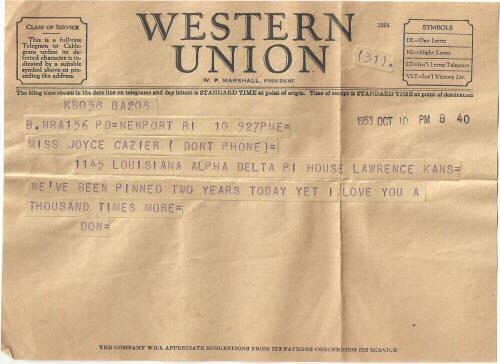 WESTERN
UNION
W. P. MARSHALL, PRESIDENT
1201
(31).
CLASS OF SERVICE
This is a full-rate
Telegram or Cable-
gram unless its de-
ferred character is in-
dicated by a suitable
symbol above or pre-
ceding the address.
SYMBOLS
DL=Day Letter
NL=Night Letter
LT=Int'l Letter Telegram
VLT=Int'l Victory Ltr.
The filing time shown in the date line on telegrams and day letters is STANDARD TIME at point of origin. Time of receipt is STANDARD TIME at point of destination
KB058 BA208
B.NRA156 PD=NEWPORT RI 10 927PME=
1953 OCT 10 PM 8 40
MISS JOYCE CAZIER (DONT PHONE)=
1145 LOUISIANA ALPHA DELTA PI HOUSE LAWRENCE KANS=
WE'VE BEEN PINNED TWO YEARS TODAY YET I LOVE YOU A
THOUSAND TIMES MORE=
DON=
THE COMPANY WILL APPRECIATE SUGGESTIONS FROM ITS PATRONS CONCERNING ITS SERVICE